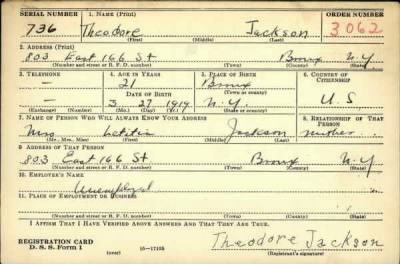 SERIAL NUMBER 1. NAME (Print) ORDER NUMBER
736 Theodore Jackson 3062
(First) (Middle) (Last)
2. ADDRESS (Print)
803 East 166 St Bronx N.Y
(Number and street or R. F. D. number) (Town) (County) (State)
3. TELEPHONE 4. AGE IN YEARS 5. PLACE OF BIRTH 6. COUNTRY OF CITIZENSHIP
— 21 Bronx
DATE OF BIRTH (Town or county)
— 3 27 1919 N.Y. U.S
(Exchange) (Number) (Mo.) (Day) (Yr.) (State or country)
7. NAME OF PERSON WHO WILL ALWAYS KNOW YOUR ADDRESS 8. RELATIONSHIP OF THAT PERSON
Mrs. Letitia Jackson mother
(Mr., Mrs., Miss) (First) (Middle) (Last)
9. ADDRESS OF THAT PERSON
803 East 166 St Bronx N.Y
(Number and street or R. F. D. number) (Town) (County) (State)
10. EMPLOYER'S NAME
Unemployed
11. PLACE OF EMPLOYMENT OR BUSINESS
(Number and street or R. F. D. number) (Town) (County) (State)
I AFFIRM THAT I HAVE VERIFIED ABOVE ANSWERS AND THAT THEY ARE TRUE.
REGISTRATION CARD
D. S. S. Form 1 (over) 16—17105 Theodore Jackson
(Registrant's signature)